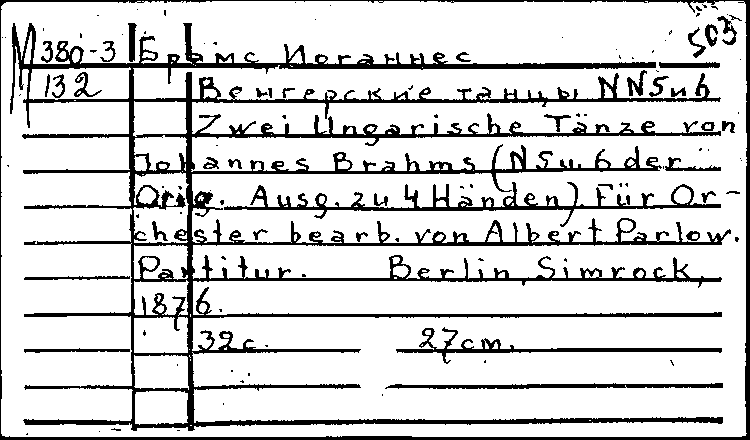 503
М 380-3 Брамс, Иоганнес
132 Венгерские танцы NN5 и 6
Zwei Ungarische Tänze von
Johannes Brahms (N5 u. 6 der
Orig. Ausg. zu 4 Händen). Für Or-
chester bearb. von Albert Parlow.
Partitur. Berlin, Simrock,
1876.
32 с. 27 cm.